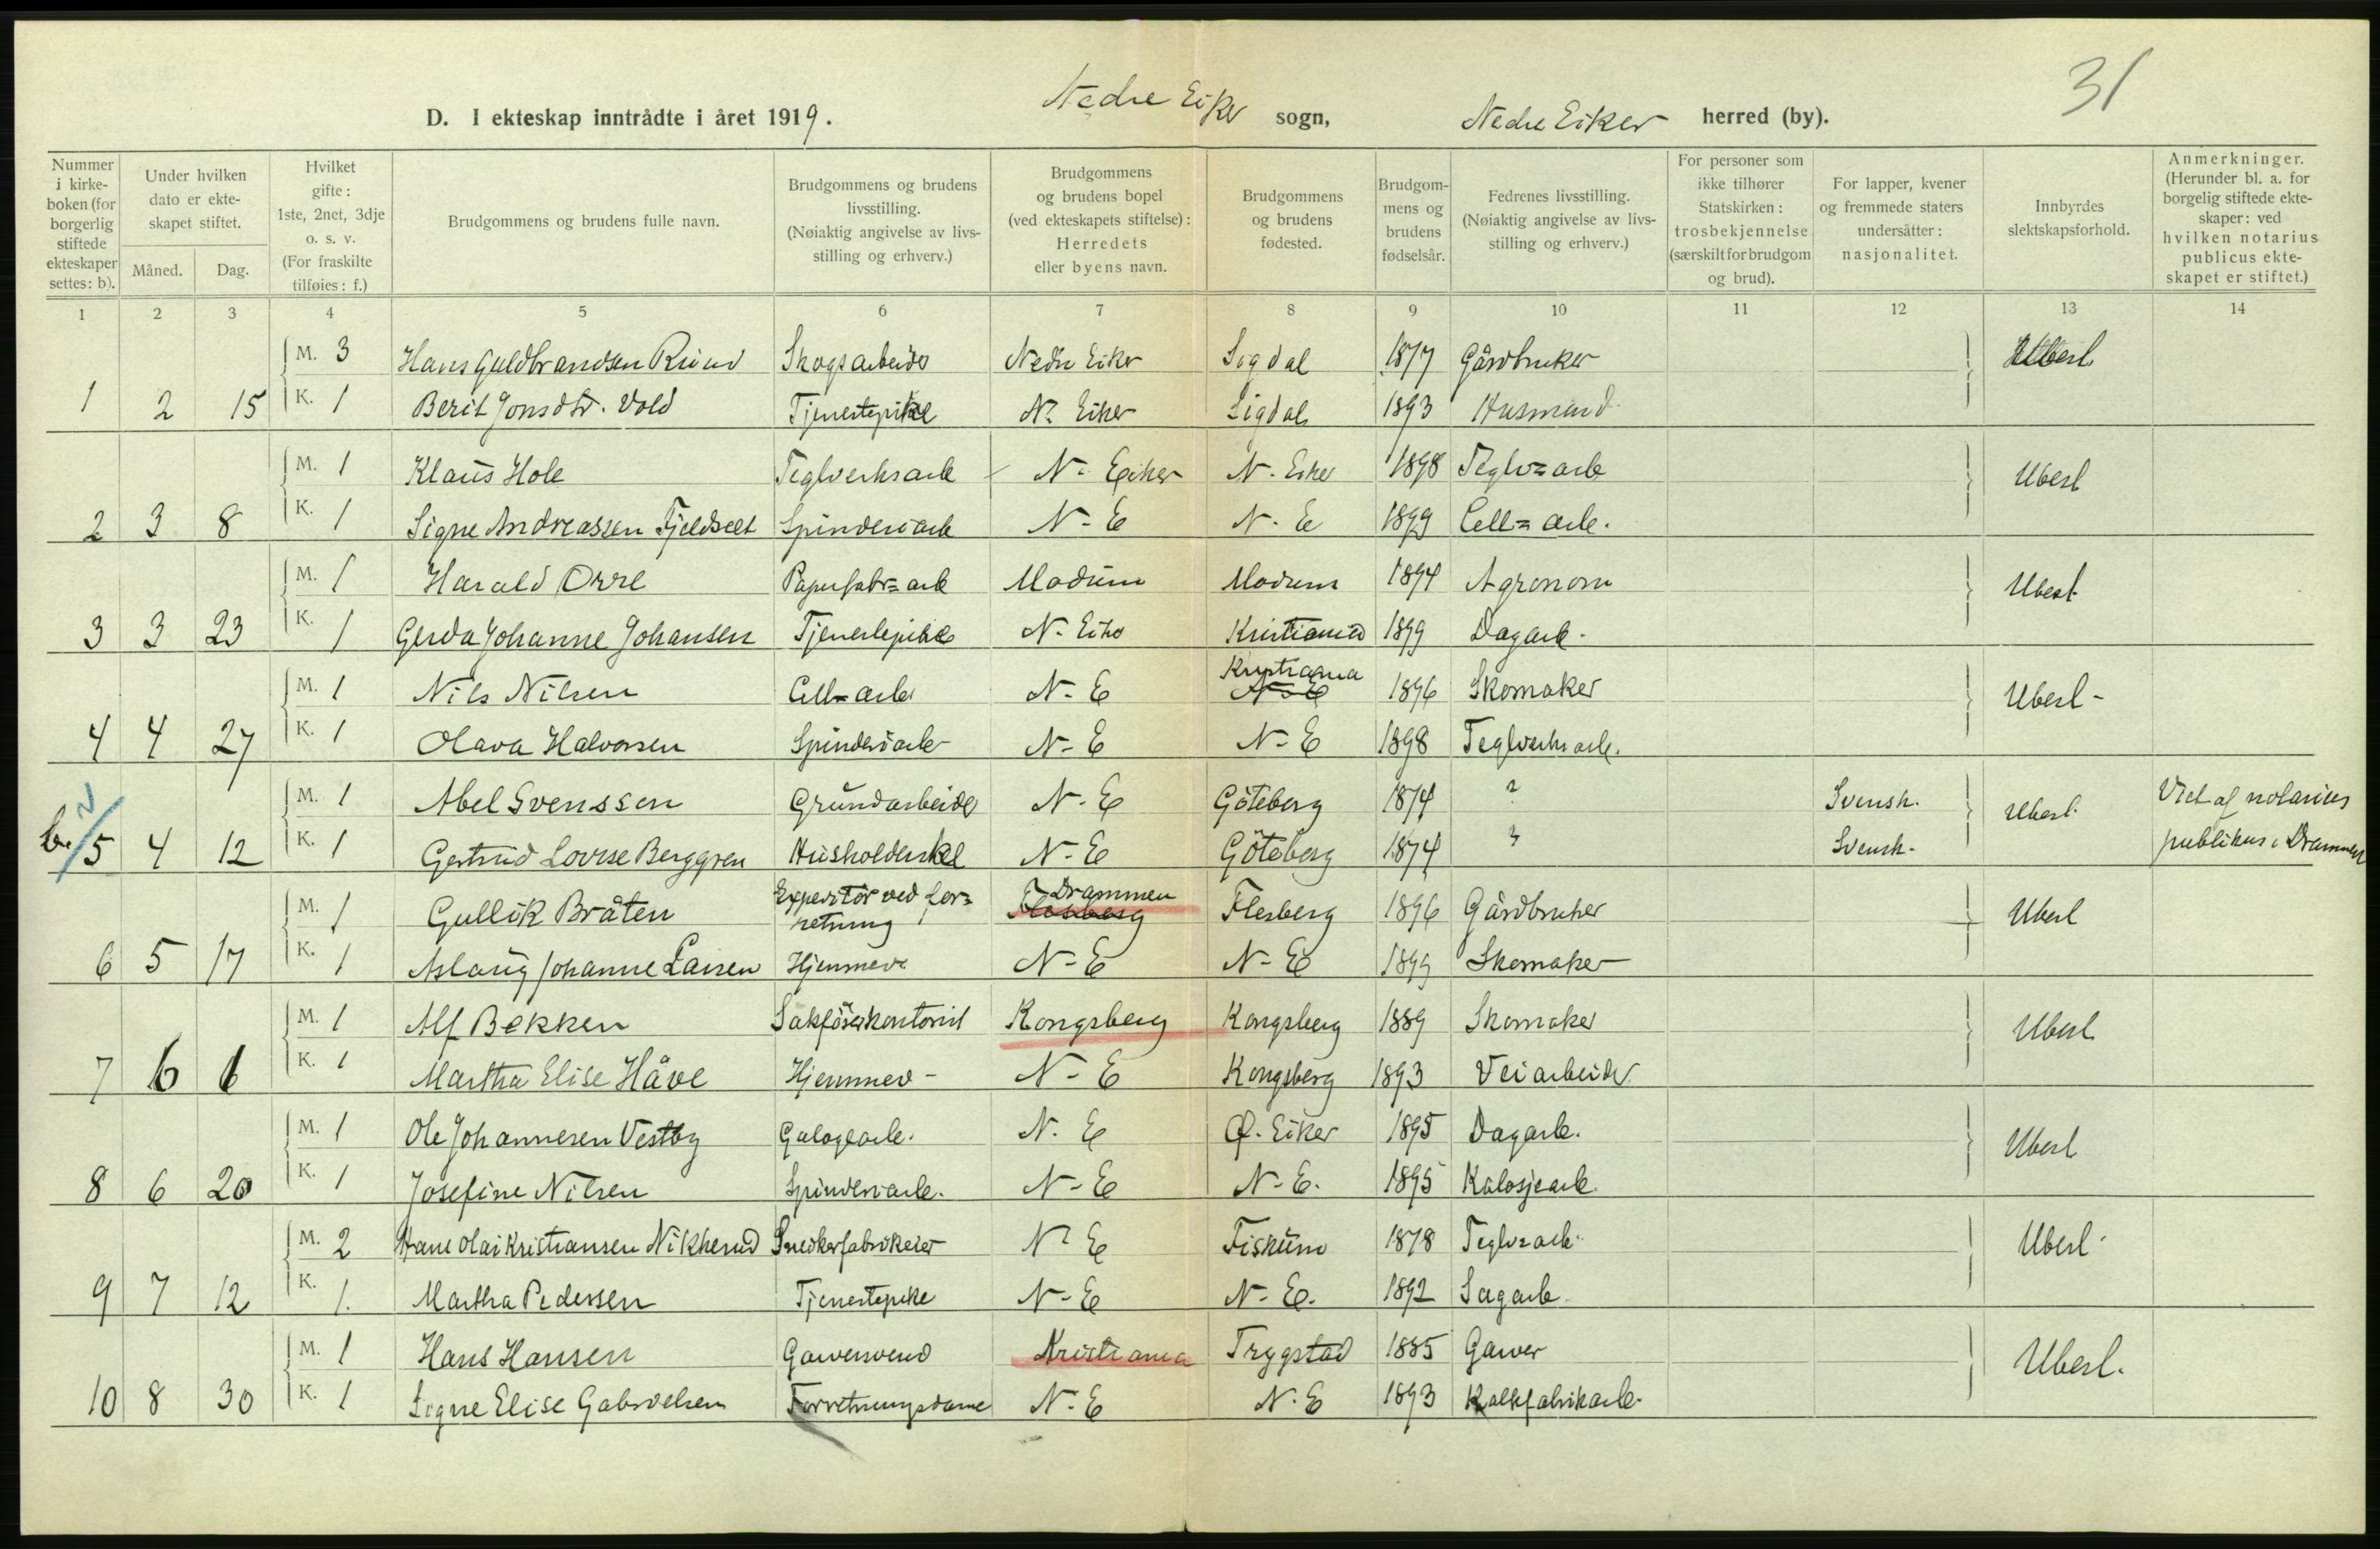 31
D. I ekteskap inntrådte i året 1919. Nedre Eiker sogn, Nedre Eiker herred (by).
Nummer i kirke-boken (for borgerlig stiftede ekteskaper settes: b).
Under hvilken dato er ekte-skapet stiftet.
Måned. Dag.
Hvilket gifte: 1ste, 2net, 3dje o. s. v. (For fraskilte tilføies: f.)
Brudgommens og brudens fulle navn.
Brudgommens og brudens livsstilling. (Nøiaktig angivelse av livs-stilling og erhverv.)
Brudgommens og brudens bopel (ved ekteskapets stiftelse): Herredets eller byens navn.
Brudgommens og brudens fødested.
Brudgom-mens og brudens fødselsår.
Fedrenes livsstilling. (Nøiaktig angivelse av livs-stilling og erhverv.)
For personer som ikke tilhører Statskirken: trosbekjennelse (særskilt for brudgom og brud).
For lapper, kvener og fremmede staters undersåtter: nasjonalitet.
Innbyrdes slektskapsforhold.
Anmerkninger. (Herunder bl. a. for borgelig stiftede ekte-skaper: ved hvilken notarius publicus ekte-skapet er stiftet.)
1 2 3 4 5 6 7 8 9 10 11 12 13 14
M. 3 Hans Guldbrandsen Ruud Skogsarbeider Nedre Eiker Sigdal 1877 Gårdbruker Ubesl
1 2 15 K. 1 Berit Jonsdtr. Vold Tjenestepike N. Eiker Sigdal 1893 Husmand
M. 1 Klaus Hole Teglverksarb N. Eiker N. Eiker 1898 Teglv=arb Ubesl
2 3 8 K. 1 Signe Andreassen Fjeldselt Spinderiarb N-E N-E 1899 Cell=arb.
M. 1 Harald Orre Papirfabr=arb Modum Modum 1894 Agronom Ubesl
3 3 23 K. 1 Gerda Johanne Johansen Tjenestepike N. Eiker Kristiania 1899 Dagarb.
M. 1 Nils Nilsen Cell=arb N-E Kristiania N-E 1896 Skomaker Ubesl-
4 4 27 K. 1 Olava Halvorsen Spinderiarb N-E N-E 1898 Teglverksarb.
M. 1 Abel Svenssen Grundarbeider N-E Göteborg 1874 ? Svensk. Ubesl. Viet af notarius
b. 5 4 12 K. 1 Gertrud Lovise Berggren Husholderske N-E Göteborg 1874 ? Svensk. publikus i Drammen
M. 1 Gullik Bråten Expeditör ved for=retning Flesberg Drammen Flesberg 1896 Gårdbruker Ubesl
6 5 17 K. 1 Aslaug Johanne Larsen Hjemmev. N-E N-E 1899 Skomaker
M. 1 Alf Bekken Sakförerkontorist Kongsberg Kongsberg 1889 Skomaker Ubesl
7 6 6 K. 1 Martha Elise Håve Hjemmev- N-E Kongsberg 1893 Veiarbeider
M. 1 Ole Johannesen Vestby Galogearb. N-E Ø. Eiker 1895 Dagarb. Ubesl
8 6 20 K. 1 Josefine Nilsen Spinderiarb. N-E N-E. 1895 Kalosjearb.
M. 2 Hans Olai Kristiansen Nikherud Snedkerfabrikeier N-E Fiskum 1878 Teglv=arb. Ubesl
9 7 12 K. 1. Martha Pedersen Tjenestepike N-E N-E. 1892 Sagarb.
M. 1 Hans Hansen Garversvend Kristiania Trygstad 1885 Garver Ubesl.
10 8 30 K. 1 Signe Elise Gabrielsen Forretningsdame N-E N-E 1893 Kalkfabrikarb.